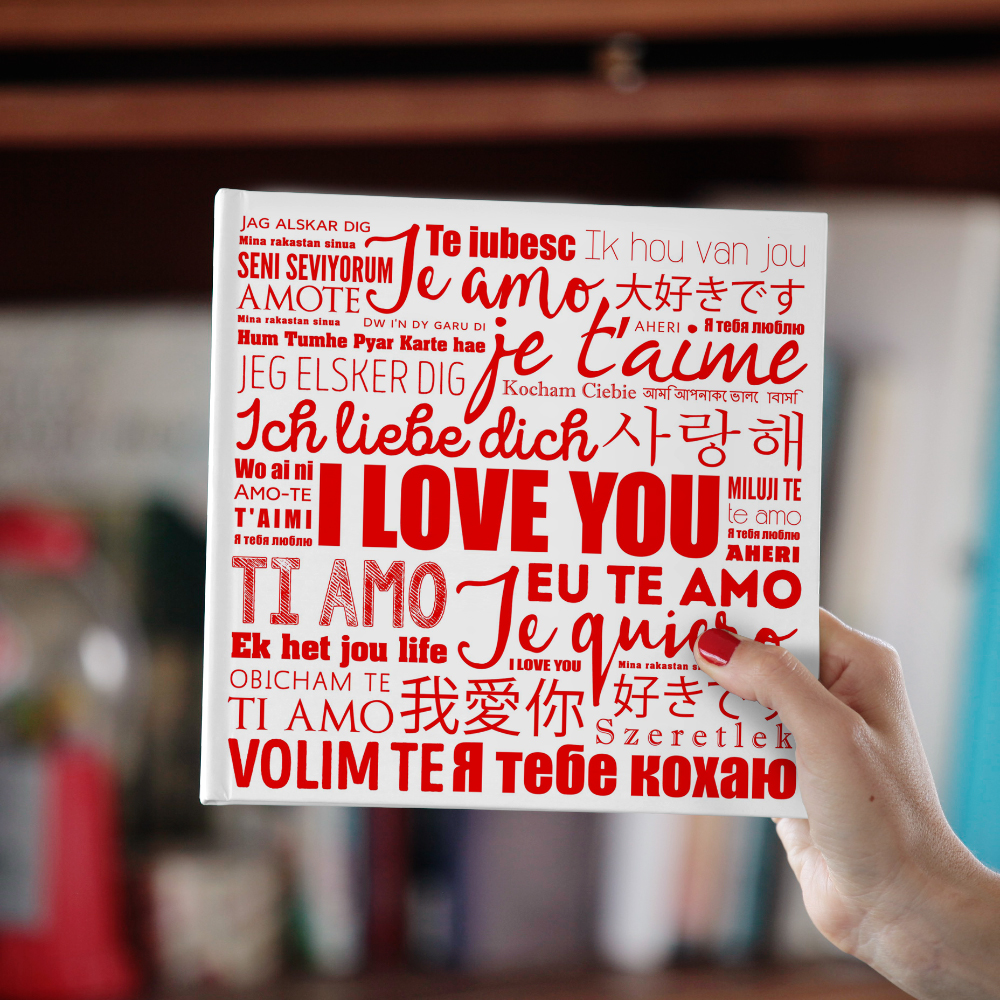 JAG ALSKAR DIG
Mina rakastan sinua
SENI SEVIYORUM
AMOTE
Mina rakastan sinua
Te iubesc
Ik hou van jou
Je amo
大好きです
DW I'N DY GARU DI
AHERI
Я тебя люблю
Hum Tumhe Pyar Karte hae
je t'aime
JEG ELSKER DIG
Kocham Ciebie
Ich liebe dich
사랑해
Wo ai ni
AMO-TE
T'AIMI
Я тебя люблю
I LOVE YOU
MILUJI TE
te amo
Я тебя люблю
AHERI
TI AMO
JEU TE AMO
Ek het jou life
Je quiero
I LOVE YOU
Mina rakastan
OBICHAM TE
TI AMO
我愛你
好きで
Szeretlek
VOLIM TE
Я тебе кохаю